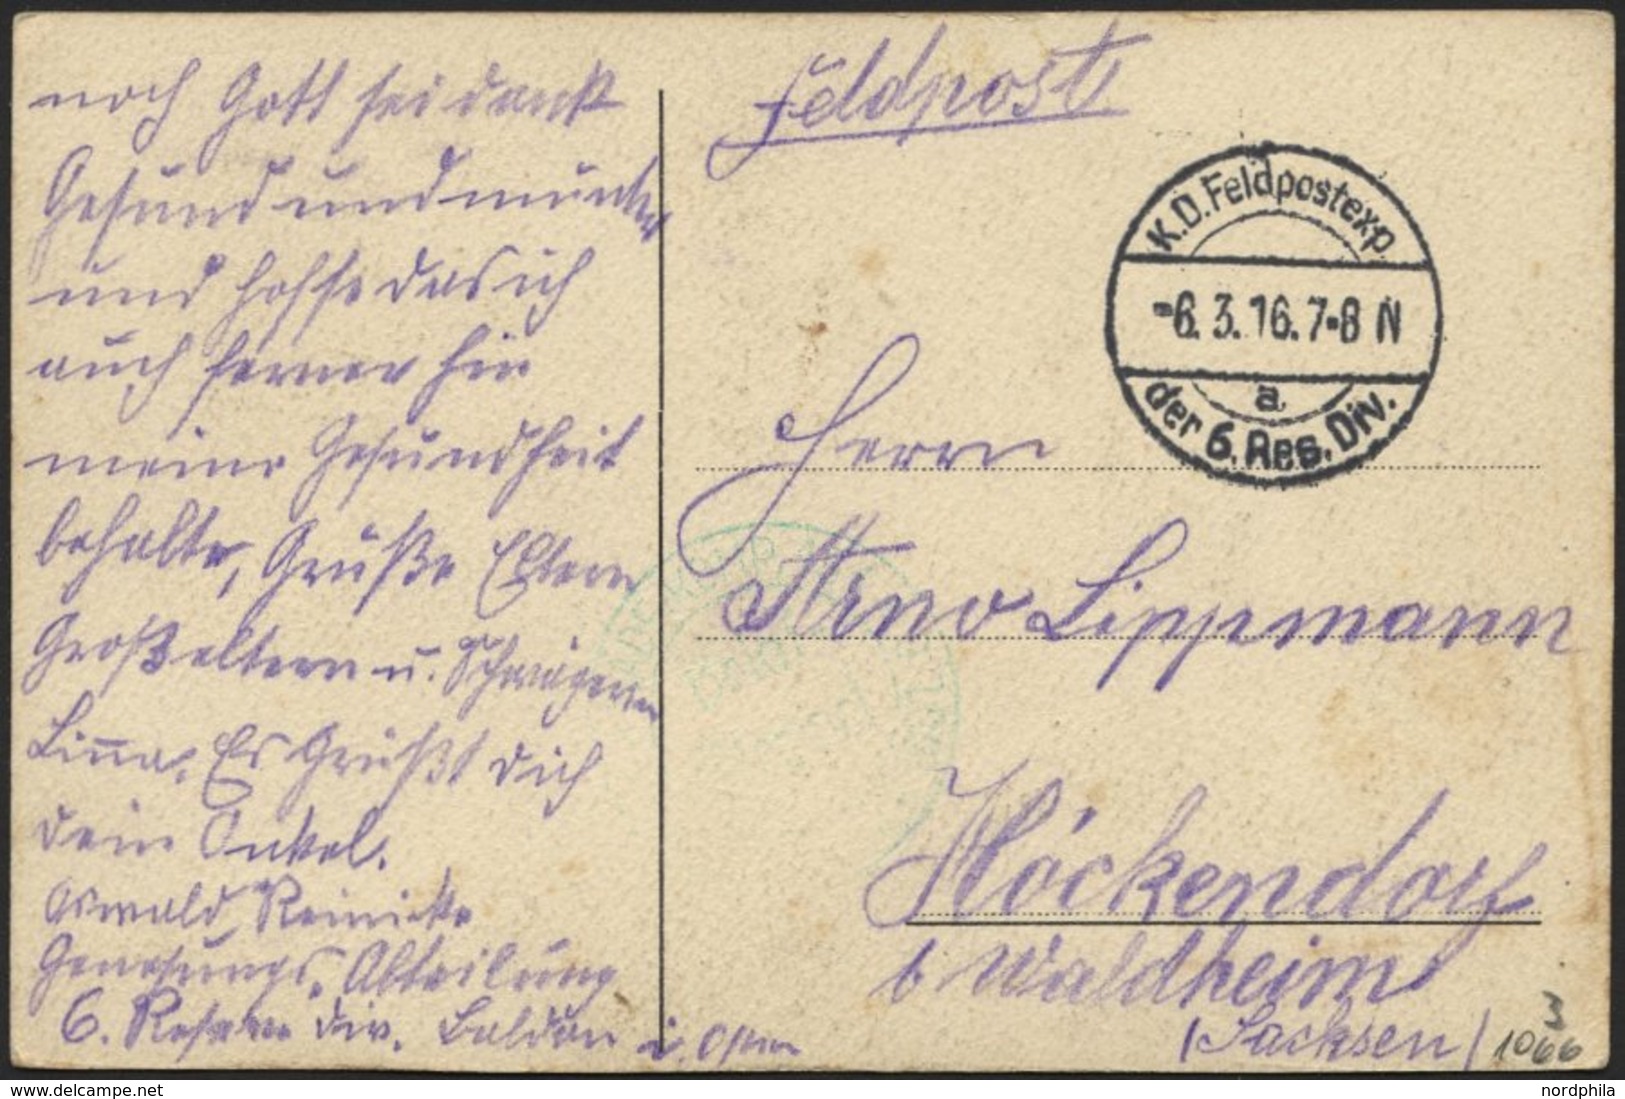 noch Gott sei dank
Gesund und munter
und hoffe das ich
auch ferner hin
meine Gesundheit
behalte, Grüße Eltern
Großeltern u. Schwägerin
Linna. Es Grüßt dich
dein Onkel.
Oswald Reinicke
Genesungs. Abteilung
6. Reserve Div. Baldon i. Osten
Feldpost
K.D. Feldpostexp.
-6.3.16.7-8 N
a
der 6. Res. Div.
Herrn
Arno Lippmann
Höckendorf
b Waldheim
(Sachsen)
3
1066
nordphila